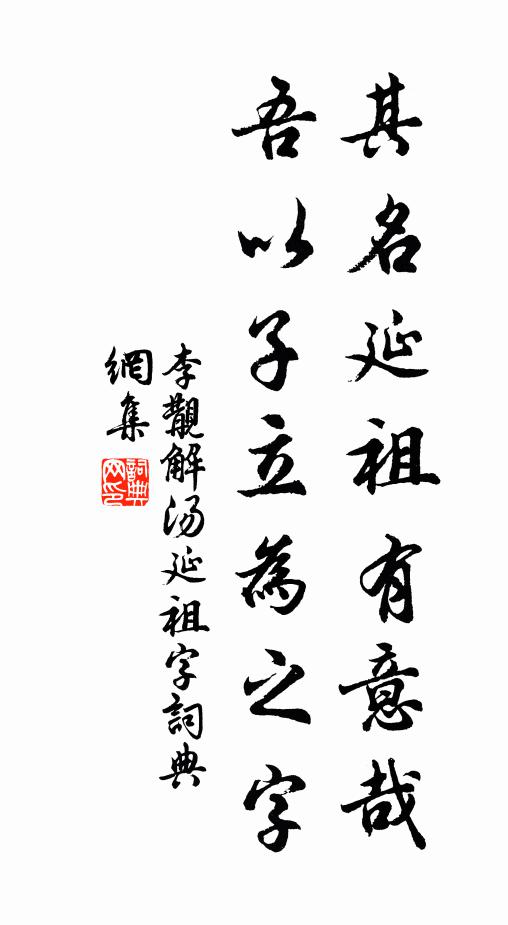 其名延祖有意哉
吾以子立為之字
李覯解湯延祖字詞典
網集
詞典
网印